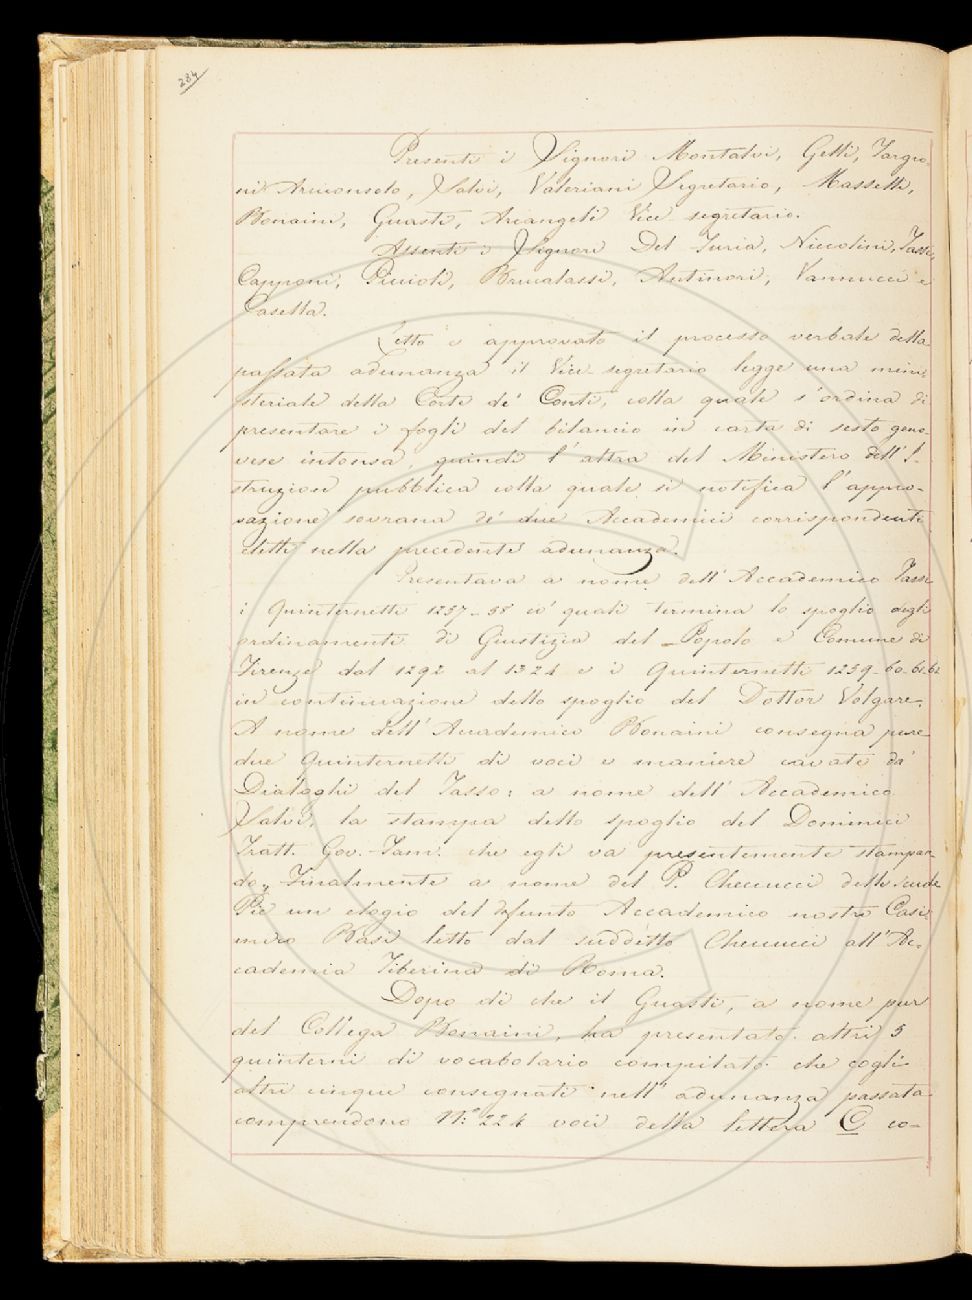 284
Presenti i Signori Montalvi, Gelli, Targio-
ni Arciconsolo, Salvi, Valeriani Segretario, Masselli,
Bonaini, Guasti, Arcangeli Vice segretario.
Assenti i Signori Del Furia, Niccolini, Tassi,
Capponi, Piccioli, Brucalassi, Antinori, Vannucci e
Casella.
Letto e approvato il processo verbale della
passata adunanza il Vice-segretario legge una mini-
steriale della Corte de' Conti, colla quale s'ordina di
presentare i fogli del bilancio in carta di sesto geno-
vese intonsa, quindi l'altra del Ministero dell'I-
struzione pubblica colla quale si notifica l'appro-
vazione sovrana de' due Accademici corrispondenti
eletti nella precedente adunanza.
Presentava a nome dell'Accademico Tassi
i Quinternetti 1257-58 co' quali termina lo spoglio degli
ordinamenti di Giustizia del Popolo e Comune di
Firenze dal 1292 al 1324 e i Quinternetti 1259-60-61-62
in continuazione dello spoglio del Dottor Volgare.
A nome dell'Accademico Bonaini consegna pure
due Quinternetti di voci e maniere cavate da'
Dialoghi del Tasso: a nome dell'Accademico
Salvi, la stampa dello spoglio del Dominici
Tratt. Gov. Fam. che egli va presentemente stampan-
do, Finalmente a nome del P. Checcucci delle Scuole
Pie un elogio del defunto Accademico nostro Casi-
miro Basi letto dal suddetto Checcucci all'Ac-
cademia Tiberina di Roma.
Dopo di che il Guasti, a nome pur
del Collega Bonaini, ha presentato altri 5
quinterni di vocabolario compilato che cogli
altri cinque consegnati nell'adunanza passata
comprendono N.° 224 voci della lettera C co-